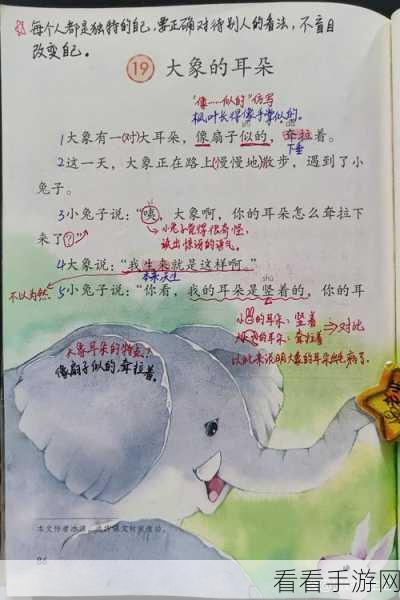 每个人都是独特的自己,要正确对待别人的看法,不盲目
改变自己。
19 大象的耳朵
"像……似的"仿写
枫叶长得像手掌似的。
1大象有一(对)大耳朵,像扇子似的,耷拉着。
下垂
2这一天,大象正在路上(慢慢地)散步,遇到了小
兔子。
3小兔子说:"咦,大象啊,你的耳朵怎么耷拉下
来了?"
小兔子觉得很奇怪,
读出惊讶的语气。
4大象说:"我生来就是这样啊。"
不以为然
shù
5小兔子说:"你看,我的耳朵是竖着的,你的耳
小兔的耳朵:竖着
大象的耳朵:耷拉着
⇒对比
以此来说明大象的耳朵出毛病了。
大象耳朵的特点:
像扇子似的,耷拉着。
本文作者冰波,选作课文时有改动。
86
看看手游网
www.kkssyy.com